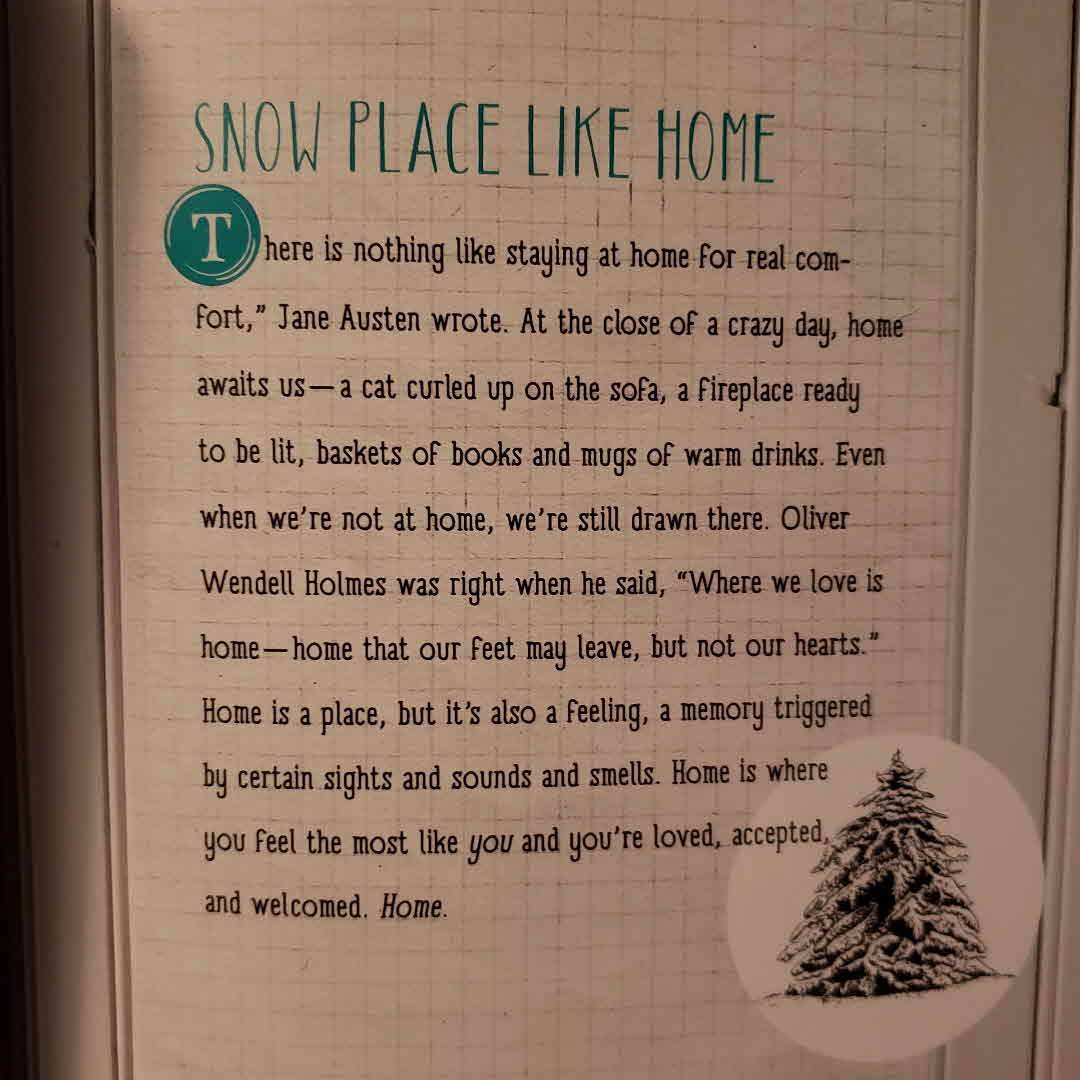 SNOW PLACE LIKE HOME
There is nothing like staying at home for real com-
fort,” Jane Austen wrote. At the close of a crazy day, home
awaits us—a cat curled up on the sofa, a fireplace ready
to be lit, baskets of books and mugs of warm drinks. Even
when we’re not at home, we’re still drawn there. Oliver
Wendell Holmes was right when he said, “Where we love is
home—home that our feet may leave, but not our hearts.”
Home is a place, but it’s also a feeling, a memory triggered
by certain sights and sounds and smells. Home is where
you feel the most like you and you’re loved, accepted,
and welcomed. Home.